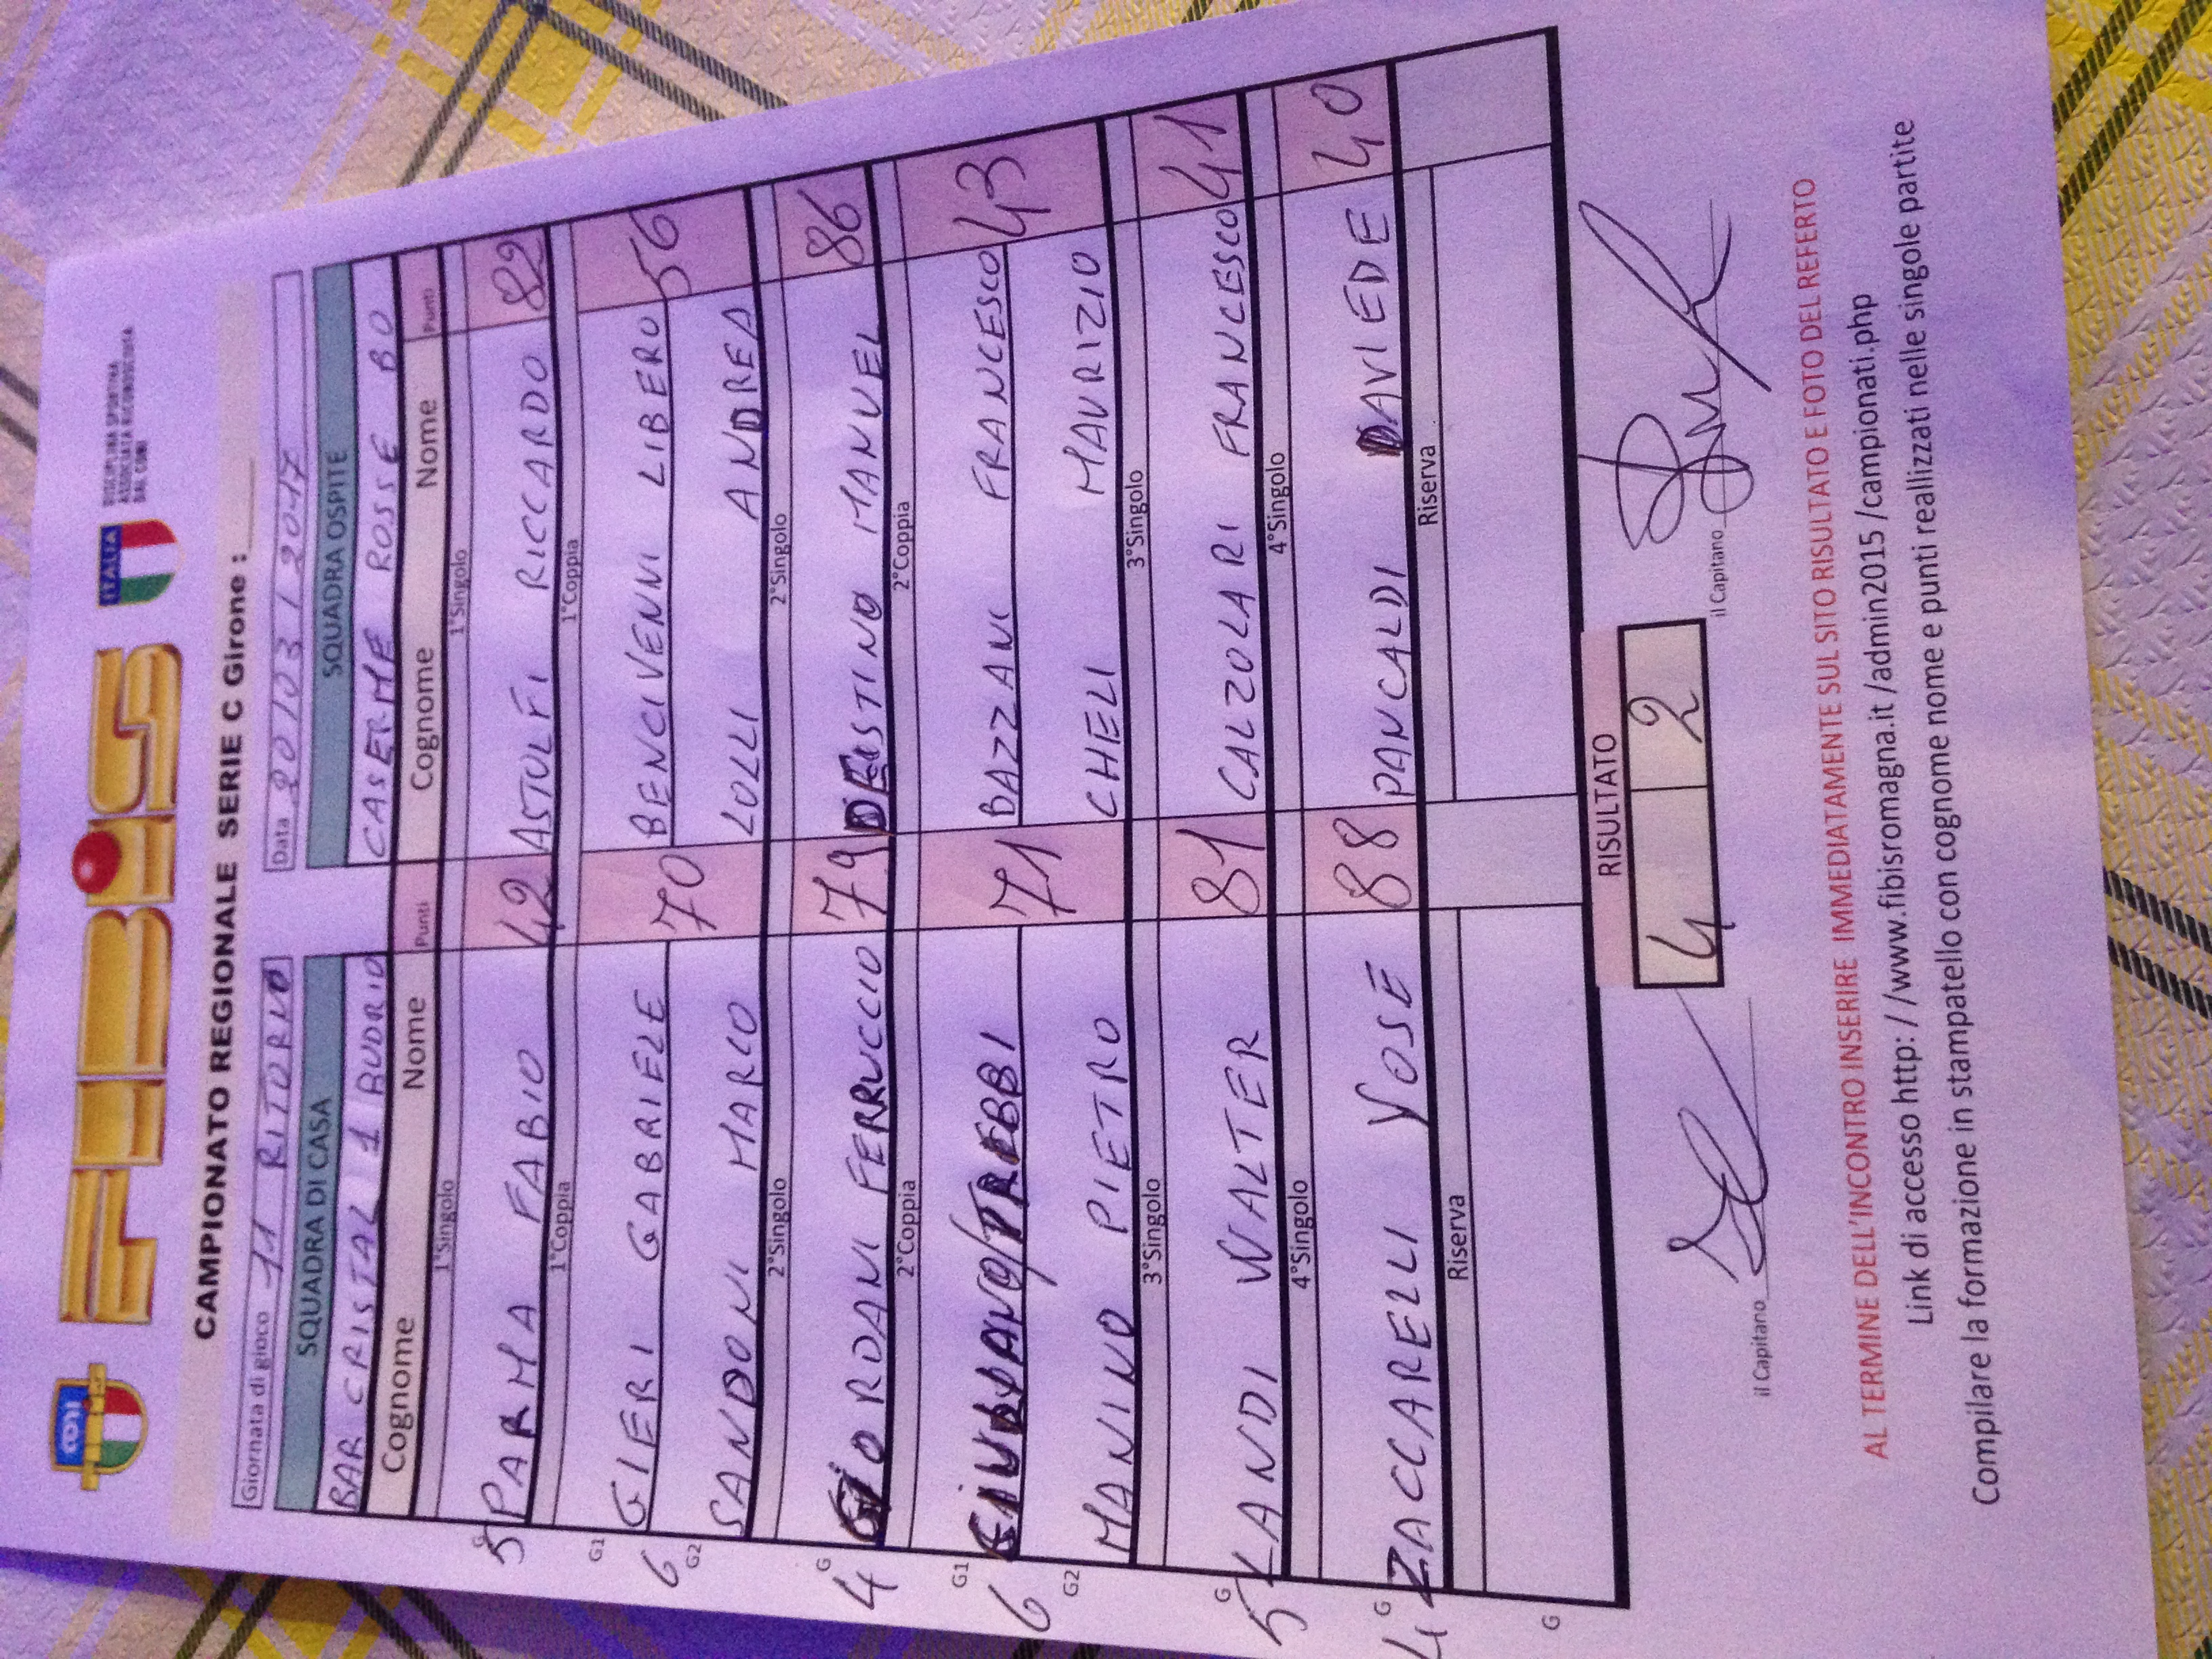 CONI
FIBiS
ITALIA
DISCIPLINA SPORTIVA
ASSOCIATA RICONOSCIUTA
DAL CONI
CAMPIONATO REGIONALE SERIE C Girone :
Giornata di gioco 11 RITORNO Data 20/03/2017
SQUADRA DI CASA SQUADRA OSPITE
BAR CRISTAL 1 BUDRIO CASERME ROSSE BO
Cognome Nome Punti Cognome Nome Punti
1°Singolo 1°Singolo
5 G PARMA FABIO 42 ASTOLFI RICCARDO 82
1°Coppia 1°Coppia
G1 GIERI GABRIELE BENCIVENNI LIBERO
6 70 56
G2 SANDONI MARCO LOLLI ANDREA
2°Singolo 2°Singolo
4 G GIORDANI FERRUCCIO 79 DESTINO MANUEL 86
2°Coppia 2°Coppia
G1 TREBBI BAZZANI FRANCESCO
6 71 43
G2 MANINO PIETRO CHELI MAURIZIO
3°Singolo 3°Singolo
5 G LANDI WALTER 81 CALZOLARI FRANCESCO 41
4°Singolo 4°Singolo
4 G ZACCARELLI YOSE 88 PANCALDI DAVIEDE 40
Riserva Riserva
G
RISULTATO
4 2
il Capitano il Capitano
AL TERMINE DELL'INCONTRO INSERIRE IMMEDIATAMENTE SUL SITO RISULTATO E FOTO DEL REFERTO
Link di accesso http: / /www.fibisromagna.it /admin2015 /campionati.php
Compilare la formazione in stampatello con cognome nome e punti realizzati nelle singole partite